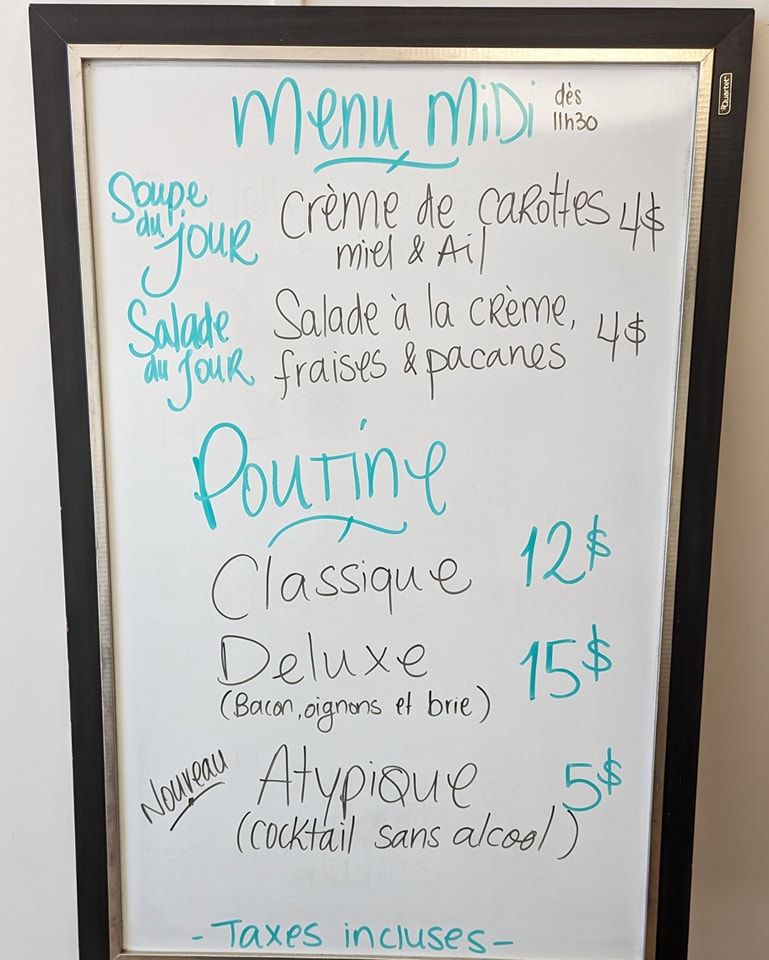 Menu Midi dès 11h30
Quartet
Soupe du jour Crème de carottes 4$
miel & Ail
Salade du jour Salade à la crème, 4$
fraises & pacanes
Poutine
Classique 12$
Deluxe 15$
(Bacon, oignons et brie)
Nouveau Atypique 5$
(cocktail sans alcool)
- Taxes incluses -